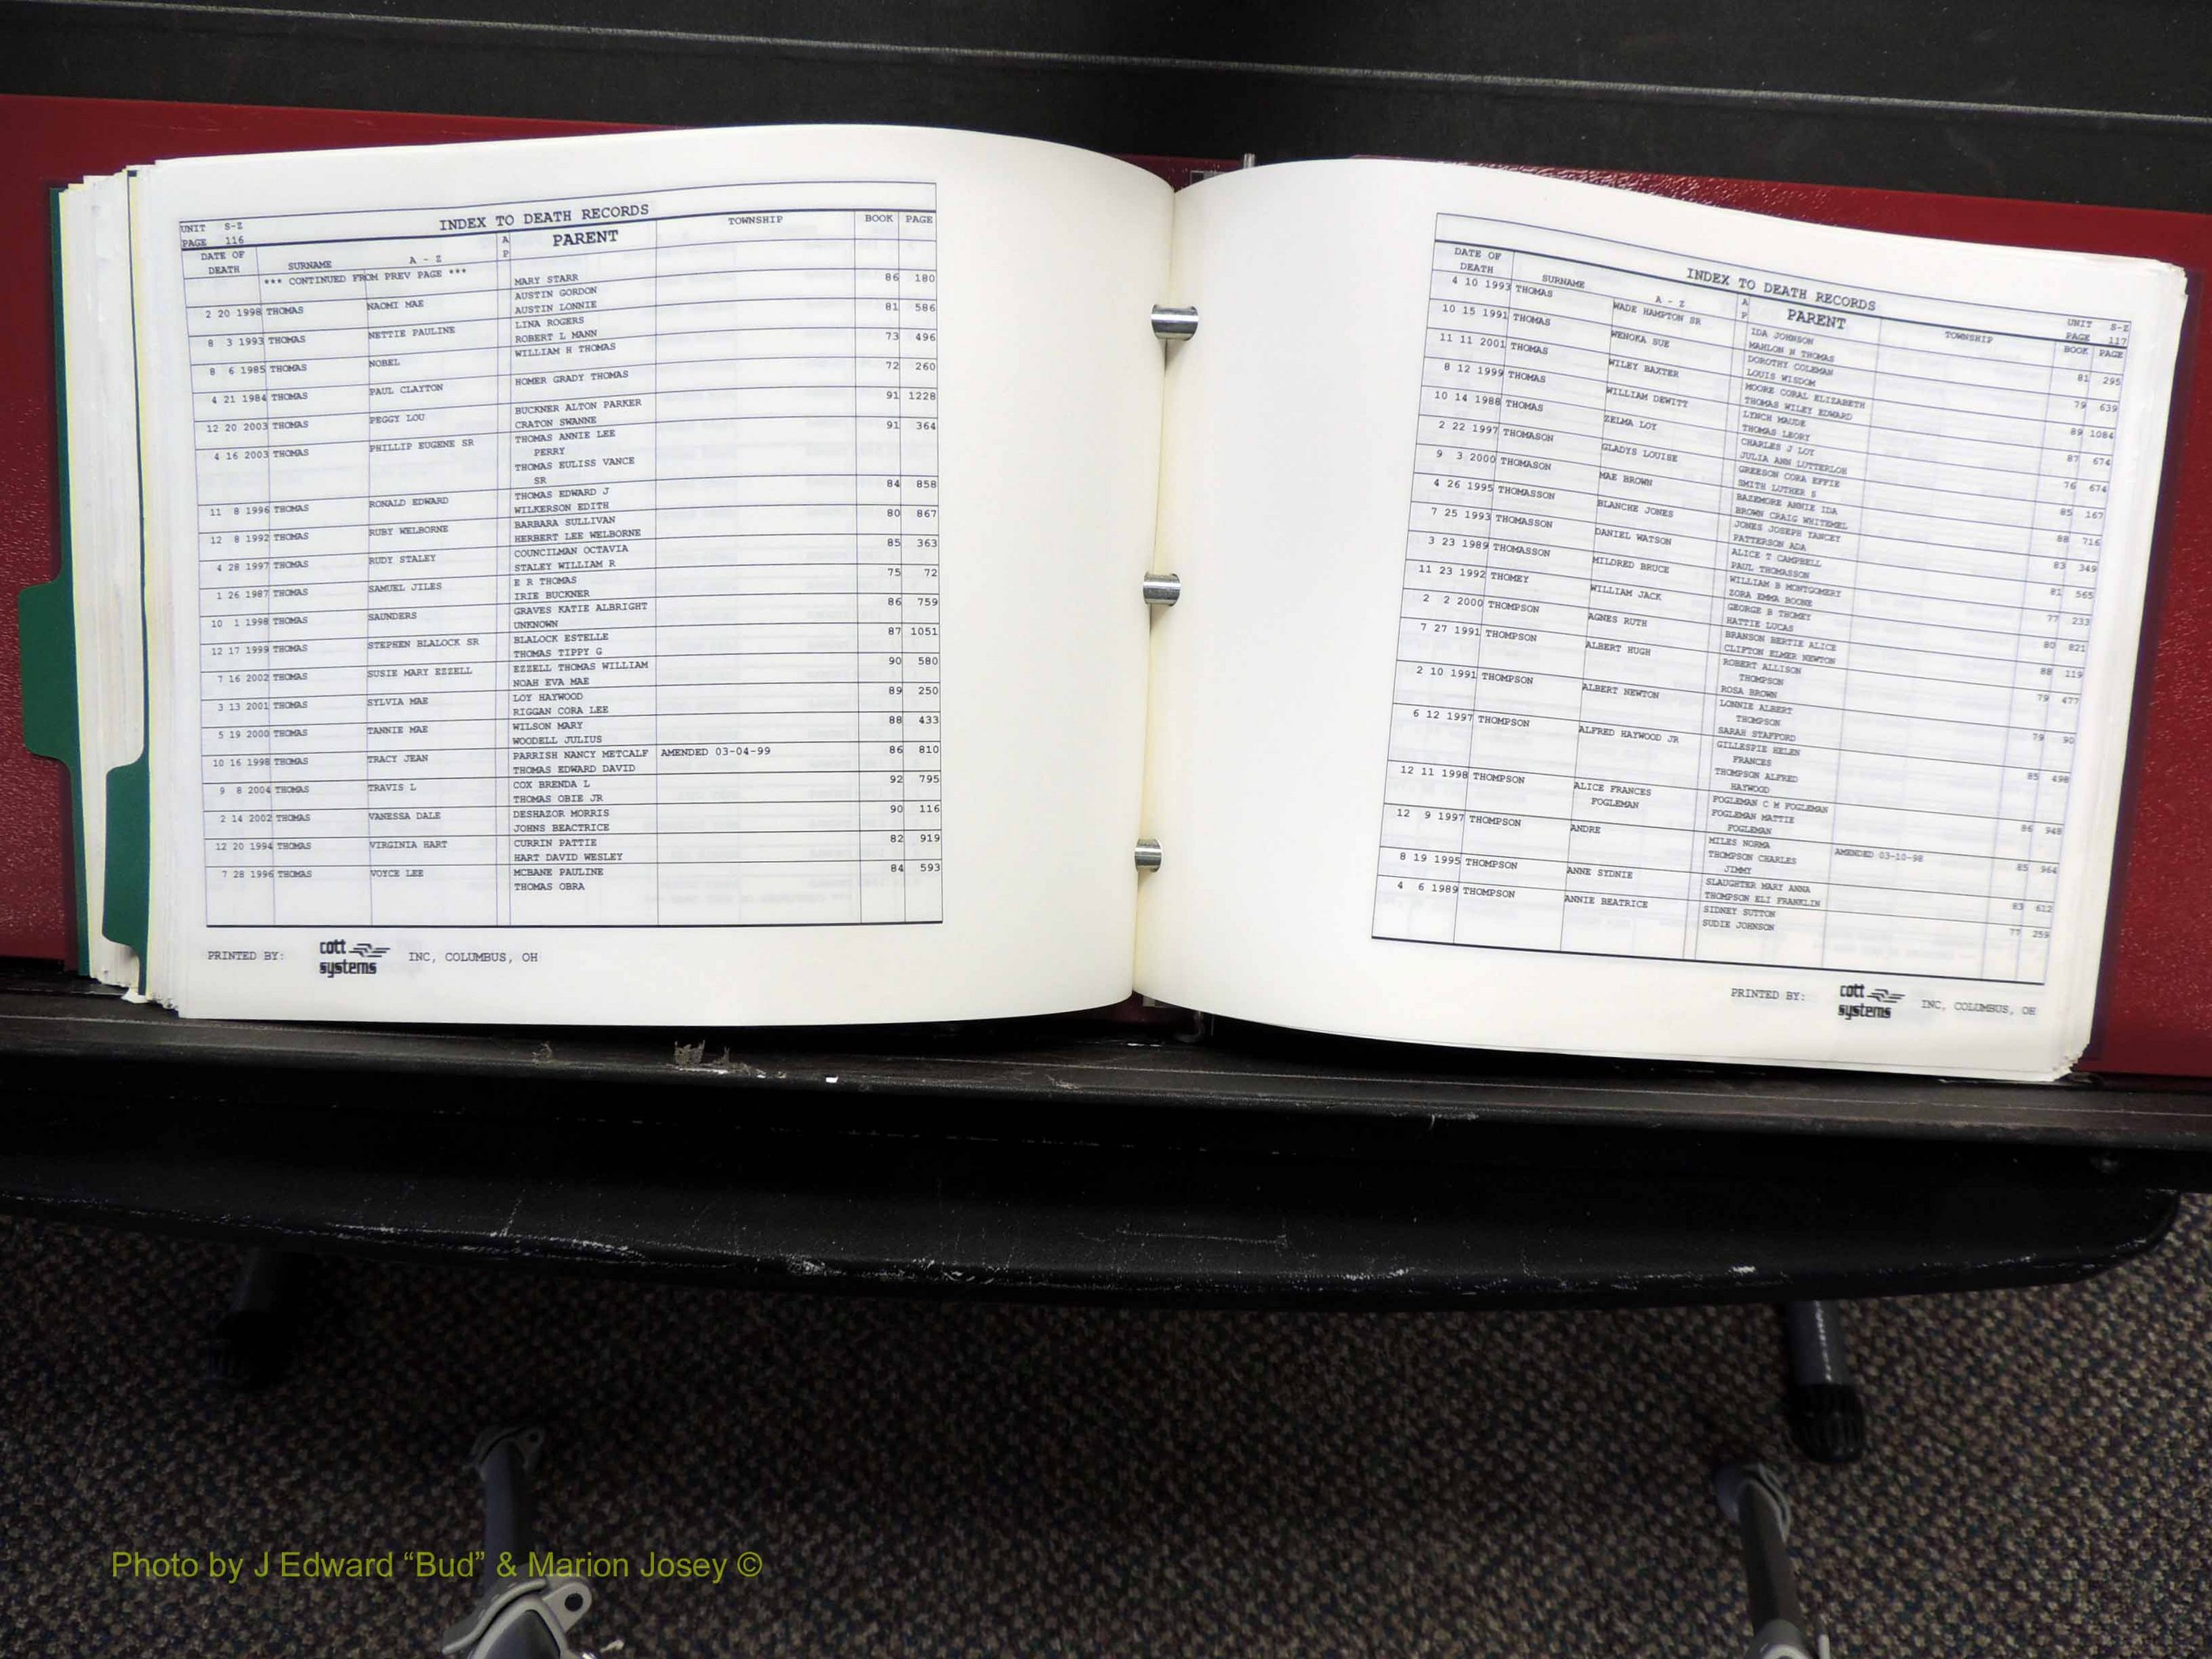 UNIT S-Z
PAGE 116
INDEX TO DEATH RECORDS
DATE OF DEATH SURNAME A - Z A P PARENT TOWNSHIP BOOK PAGE
*** CONTINUED FROM PREV PAGE *** MARY STARR
2 20 1998 THOMAS NAOMI MAE AUSTIN GORDON 86 180
AUSTIN LONNIE
8 3 1993 THOMAS NETTIE PAULINE LINA ROGERS 81 586
ROBERT L MANN
8 6 1985 THOMAS NOBEL WILLIAM H THOMAS 73 496
4 21 1984 THOMAS PAUL CLAYTON HOMER GRADY THOMAS 72 260
12 20 2003 THOMAS PEGGY LOU BUCKNER ALTON PARKER 91 1228
CRATON SWANNE
4 16 2003 THOMAS PHILLIP EUGENE SR THOMAS ANNIE LEE 91 364
PERRY
THOMAS EULISS VANCE
SR
11 8 1996 THOMAS RONALD EDWARD THOMAS EDWARD J 84 858
WILKERSON EDITH
12 8 1992 THOMAS RUBY WELBORNE BARBARA SULLIVAN 80 867
HERBERT LEE WELBORNE
4 28 1997 THOMAS RUDY STALEY COUNCILMAN OCTAVIA 85 363
STALEY WILLIAM R
1 26 1987 THOMAS SAMUEL JILES E R THOMAS 75 72
IRIE BUCKNER
10 1 1998 THOMAS SAUNDERS GRAVES KATIE ALBRIGHT 86 759
UNKNOWN
12 17 1999 THOMAS STEPHEN BLALOCK SR BLALOCK ESTELLE 87 1051
THOMAS TIPPY G
7 16 2002 THOMAS SUSIE MARY EZZELL EZZELL THOMAS WILLIAM 90 580
NOAH EVA MAE
3 13 2001 THOMAS SYLVIA MAE LOY HAYWOOD 89 250
RIGGAN CORA LEE
5 19 2000 THOMAS TANNIE MAE WILSON MARY 88 433
WOODELL JULIUS
10 16 1998 THOMAS TRACY JEAN PARRISH NANCY METCALF AMENDED 03-04-99 86 810
THOMAS EDWARD DAVID
9 8 2004 THOMAS TRAVIS L COX BRENDA L 92 795
THOMAS OBIE JR
2 14 2002 THOMAS VANESSA DALE DESHAZOR MORRIS 90 116
JOHNS BEACTRICE
12 20 1994 THOMAS VIRGINIA HART CURRIN PATTIE 82 919
HART DAVID WESLEY
7 28 1996 THOMAS VOYCE LEE MCBANE PAULINE 84 593
THOMAS OBRA
PRINTED BY: cott systems INC, COLUMBUS, OH
INDEX TO DEATH RECORDS
UNIT S-Z
PAGE 117
DATE OF DEATH SURNAME A - Z A P PARENT TOWNSHIP BOOK PAGE
4 10 1993 THOMAS WADE HAMPTON SR IDA JOHNSON 81 295
MAHLON H THOMAS
10 15 1991 THOMAS WENOKA SUE DOROTHY COLEMAN 79 639
LOUIS WISDOM
11 11 2001 THOMAS WILEY BAXTER MOORE CORAL ELIZABETH 89 1084
THOMAS WILEY EDWARD
8 12 1999 THOMAS WILLIAM DEWITT LYNCH MAUDE 87 674
THOMAS LEORY
10 14 1988 THOMAS ZELMA LOY CHARLES J LOY 76 674
JULIA ANN LUTTERLOH
2 22 1997 THOMASON GLADYS LOUISE GREESON CORA EFFIE 85 167
SMITH LUTHER S
9 3 2000 THOMASON MAE BROWN BAZEMORE ANNIE IDA 88 716
BROWN CRAIG WHITEMEL
4 26 1995 THOMASSON BLANCHE JONES JONES JOSEPH YANCEY 83 349
PATTERSON ADA
7 25 1993 THOMASSON DANIEL WATSON ALICE T CAMPBELL 81 565
PAUL THOMASSON
3 23 1989 THOMASSON MILDRED BRUCE WILLIAM B MONTGOMERY 77 233
ZORA EMMA BOONE
11 23 1992 THOMEY WILLIAM JACK GEORGE B THOMEY 80 821
HATTIE LUCAS
2 2 2000 THOMPSON AGNES RUTH BRANSON BERTIE ALICE 88 119
CLIFTON ELMER NEWTON
7 27 1991 THOMPSON ALBERT HUGH ROBERT ALLISON 79 477
THOMPSON
ROSA BROWN
2 10 1991 THOMPSON ALBERT NEWTON LONNIE ALBERT 79 90
THOMPSON
SARAH STAFFORD
6 12 1997 THOMPSON ALFRED HAYWOOD JR GILLESPIE HELEN 85 498
FRANCES
THOMPSON ALFRED
HAYWOOD
12 11 1998 THOMPSON ALICE FRANCES FOGLEMAN C M FOGLEMAN 86 948
FOGLEMAN FOGLEMAN MATTIE
FOGLEMAN
12 9 1997 THOMPSON ANDRE MILES NORMA AMENDED 03-10-98 85 964
THOMPSON CHARLES
JIMMY
8 19 1995 THOMPSON ANNE SYDNIE SLAUGHTER MARY ANNA 83 612
THOMPSON ELI FRANKLIN
4 6 1989 THOMPSON ANNIE BEATRICE SIDNEY SUTTON 77 259
SUDIE JOHNSON
PRINTED BY: cott systems INC, COLUMBUS, OH
Photo by J Edward “Bud” & Marion Josey ©